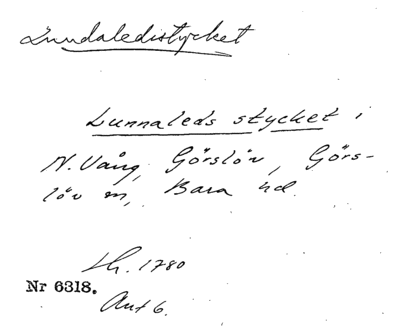 Lundaledsstycket
Lunnaleds stycket i
N. Vång, Görslöv, Görs-
löv sn, Bara hd.
Lh. 1780
Nr 6318.
Akt 6.